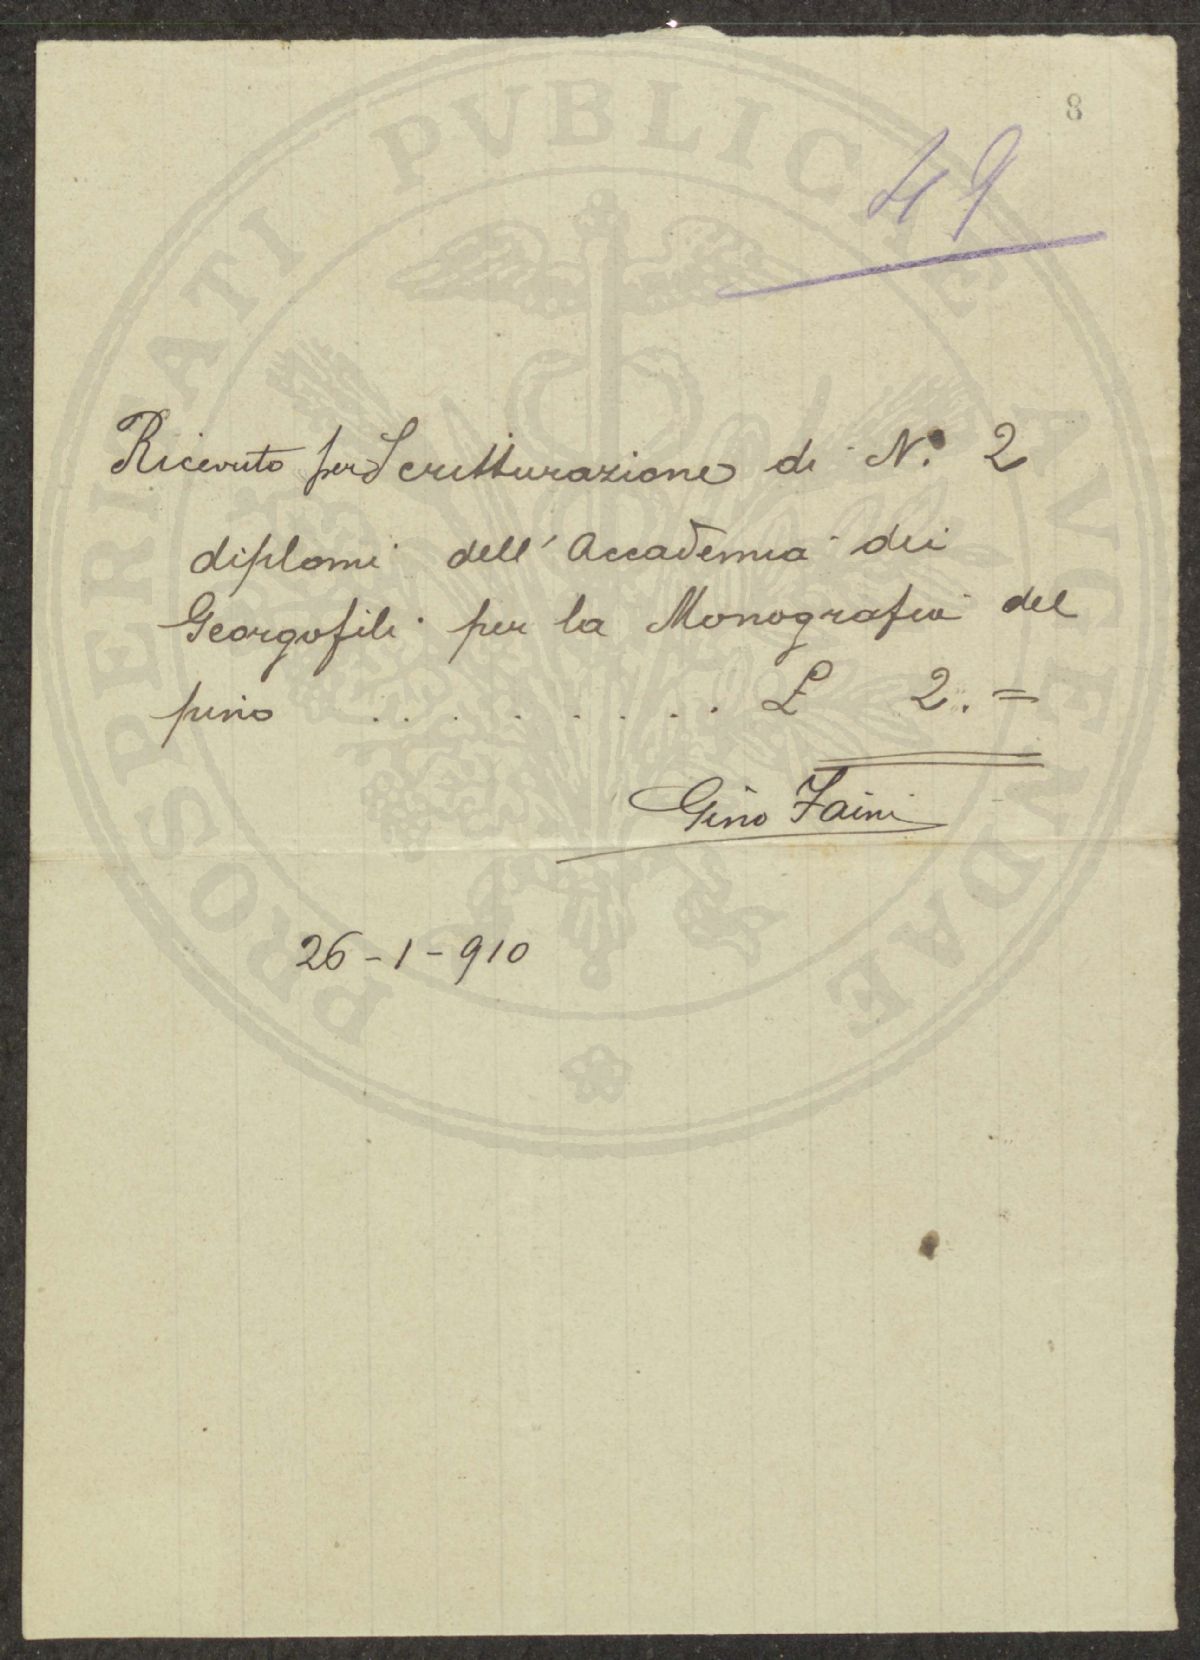 8
49
Ricevuto per Scritturazione di N.º 2
diplomi dell'Accademia dei
Georgofili per la Monografia del
pino . . . . . . . . . £ 2. =
Gino Faini
26-1-910
PROSPERITATI PVBLICAE AVGENDAE